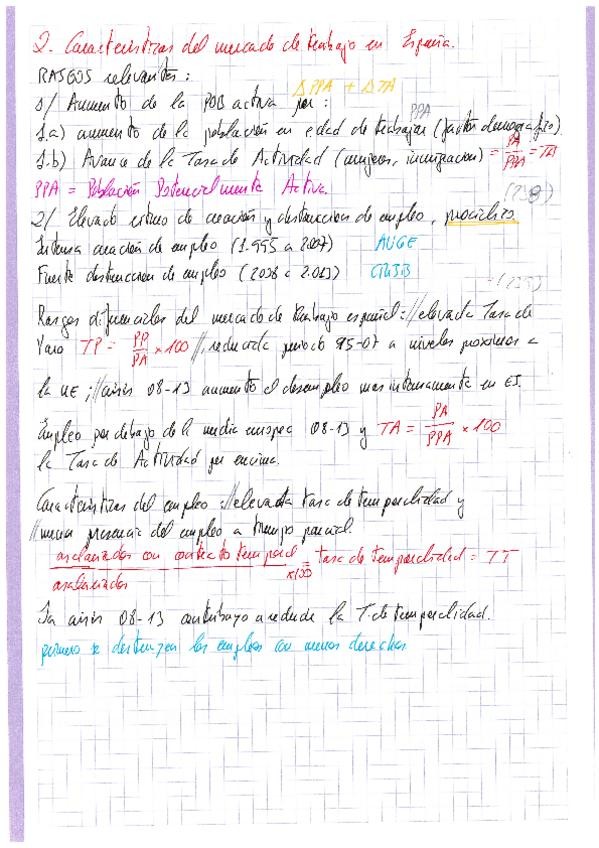 2. Características del mercado de trabajo en España.
RASGOS relevantes:
1/ Aumento de la POB activa por: ΔPPA + ΔTA
1.a) aumento de la población en edad de trabajar (factor demográfico) PPA
1.b) Avance de la Tasa de Actividad (mujeres, inmigración) = PA/PPA = TA
PPA = Población Potencialmente Activa.
2/ Elevado ritmo de creación y destrucción de empleo, procíclico
Intensa creación de empleo (1.995 a 2007) AUGE
Fuerte destrucción de empleo (2008 a 2.013) CRISIS
Rasgos diferenciales del mercado de trabajo español: // elevada Tasa de
Paro TP = PP/PA × 100 //, reducida período 95-07 a niveles próximos a
la UE; // crisis 08-13 aumento el desempleo mas intensamente en ES.
Empleo por debajo de la media europea 08-13 y TA = PA/PPA × 100
la Tasa de Actividad por encima.
Características del empleo: // elevada tasa de temporalidad y
// menor presencia del empleo a tiempo parcial.
asalariados con contrato temporal / asalariados ×100 = tasa de temporalidad = TT
La crisis 08-13 contribuyo a reducir la T. de temporalidad.
primero se destruyen los empleos con menos derechos